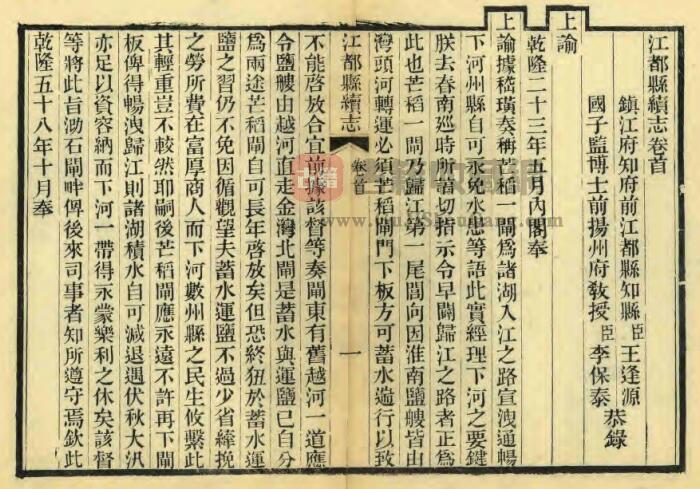 江都縣續志卷首
鎮江府知府前江都縣知縣臣王逢源
國子監博士前揚州府教授臣李保泰恭錄
上諭
乾隆二十三年五月內閣奉
上諭據嵇璜奏稱芒稻一閘為諸湖入江之路宣洩通暢
下河州縣自可永免水患等語此實經理下河之要鍵
朕去春南巡時所諄切指示令早闢歸江之路者正為
此也芒稻一閘乃歸江第一尾閭向因淮南鹽艘皆由
灣頭河轉運必須芒稻閘門下板方可蓄水遄行以致
江都縣續志
卷首
一
不能啓放合宜前據該督等奏閘東有舊越河一道應
令鹽艘由越河直走金灣北閘是蓄水與運鹽已自分
為兩途芒稻閘自可長年啓放矣但恐終狃於蓄水運
鹽之習仍不免因循觀望夫蓄水運鹽不過少省縴挽
之勞所費在富厚商人而下河數州縣之民生攸繫此
其輕重豈不較然耶嗣後芒稻閘應永遠不許再下閘
板俾得暢洩歸江則諸湖積水自可減退遇伏秋大汛
亦足以資容納而下河一帶得永蒙樂利之休矣該督
等將此旨泐石閘畔俾後來司事者知所遵守焉欽此
乾隆五十八年十月奉